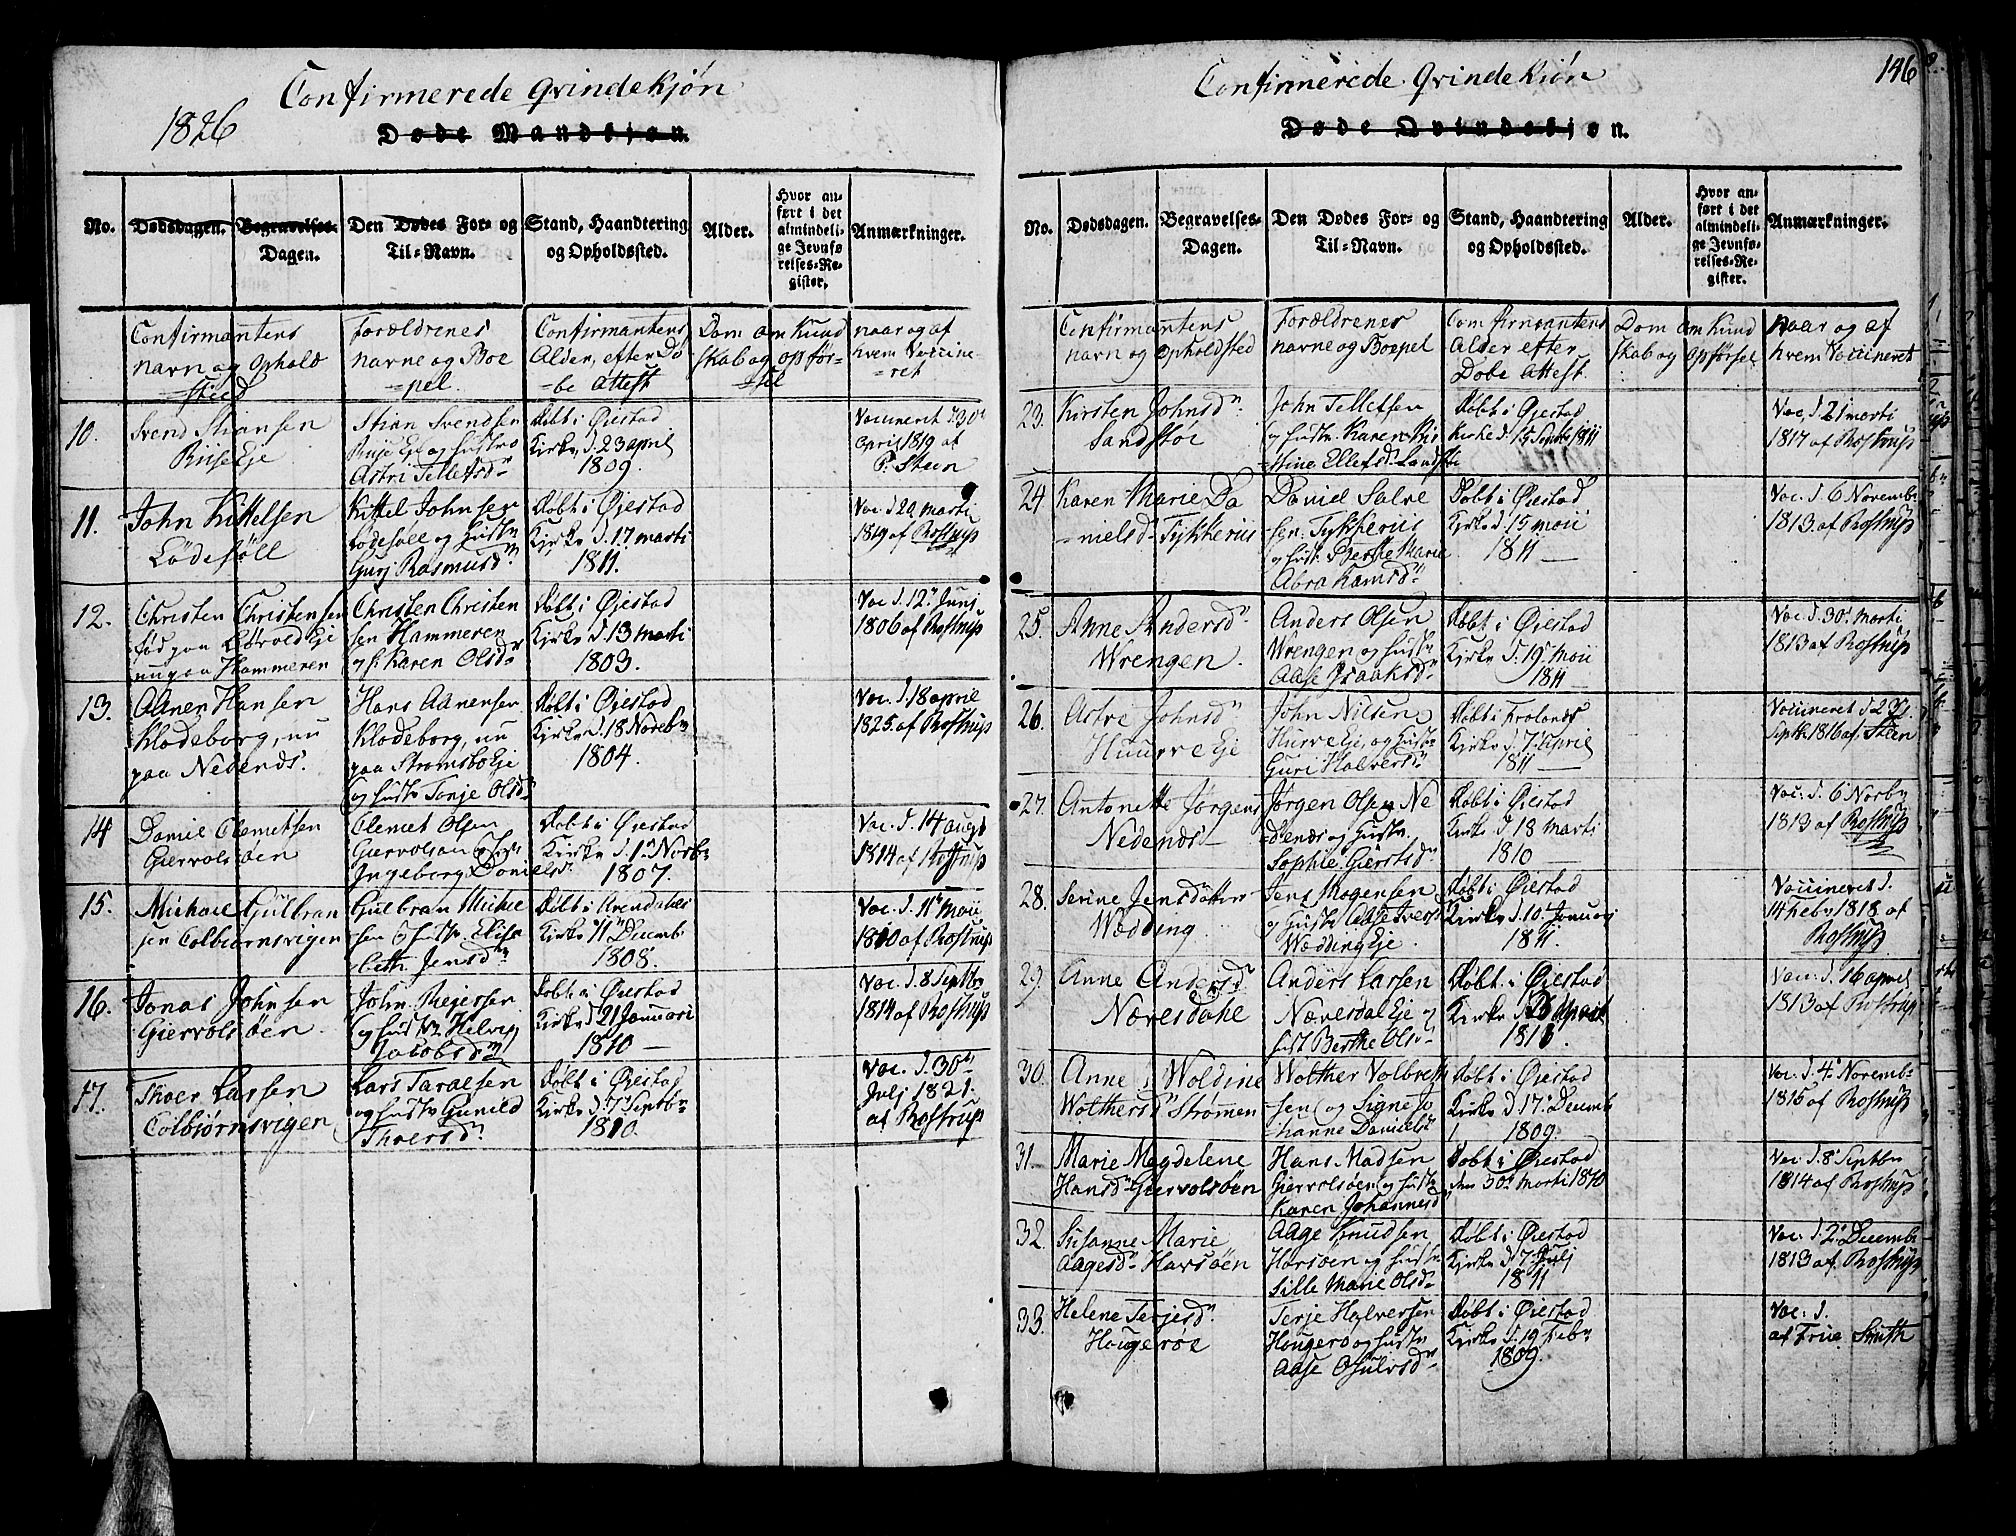 1826
Confirmerede Qvindekjøn
Døde Mandkjøn.
No.
Dødsdagen.
Begravelses-
Dagen.
Den Dødes For- og
Til-Navn.
Stand, Haandtering
og Opholdssted.
Alder.
Hvor an-
ført i det
almindeli-
ge Jevnfø-
relses-Re-
gister.
Anmærkninger.
Confirmantens
navn og Ophold
sted
Forældrenes
navne og Boe
=pel.
Confirmantens
Alder, efter Dø
=be Attest
Dom om Kund
skab og opfør-
=sel
naar og af
hvem Vaccine-
=ret
10.
Svend Stiansen
Riise Eje
Stian Svendsen
Riise Eje og hustro
Astri Tellefsdr
Døbt i Øiestad
Kirke d. 23 april
1809.
Vaccineret d. 30
April 1819 af
P. Steen
11.
John Kittelsen
Lødesøll
Kittel Johnsen
Lodesøll og Hustr
Gurj Rasmusdr
Døbt i Øiestad
Kirke d. 17 marti
1811.
Vac. d. 20 marti
1819 af Rostrup
12.
Christen Christensen
fød paa Løvold Eje
nu paa Hammeren
Christen Christen
sen Hammeren
og h. Karen Olsdr
Døbt i Øiestad
Kirke d. 13 marti
1803.
Vac d. 12 Junj
1806 af Rostrup
13.
Aanen Hansen
Klodeborg, nu
paa Nedends.
Hans Aanensen
Klodeborg, nu
paa Strømsbo Eje
og hustr Tonje Olsd
Døbt i Øiestad
Kirke d. 18 Novebr
1804.
Vac. d. 18 april
1825 af Rostrup
14
Daniel Clemetsen
Giervolsøen
Clemet Olsen
Giervolsøen og hustr
Ingeborg Danielsd
Døbt i Øiestad
Kirke d. 1 Novbr
1807.
Vac. d. 14 augst
1814 af Rostrup
15.
Michael Gulbran
sen Colbiørnsvigen
Gulbran Michel
sen og hustr. Elisa
beth Jensdr
Døbt i Arendahls
Kirke 11 Decemb
1808.
Vac. d. 11 Maii
1810 af Rostrup
16.
Jonas Johnsen
Giervolsøen
John Reiersen
og hustr Helvig
Jacobsdr
Døbt i Øiestad
Kirke d 21 Januari
1810
Vac. d. 8 Septbr
1814 af Rostrup
17.
Thoer Larsen
Colbiørnsvigen
Lars Taraldsen
og hustr Gunild
Thoersdr
Døbt i Øiestad
Kirke d. 7 Septbr
1810.
Vac. d. 30
Julj 1821.
af Rostrup
146
Confirmerede Qvindekiøn
Døde Qvindekjøn.
No.
Dødsdagen.
Begravelses-
Dagen.
Den Dødes For- og
Til-Navn.
Stand, Haandtering
og Opholdssted.
Alder.
Hvor an-
ført i det
almindeli-
ge Jevnfø-
relses-Re-
gister.
Anmærkninger.
Confirmantens
navn og Opholdsted
Forældrenes
navne og Boepel
Confirmantens
Alder efter
Døbe Attest.
Dom om Kund
skab og Opførsel
Naar og af
hvem Vaccineret
23.
Kirsten Johnsdr
Sandstøe
John Tellefsen
og hustr. Karen Kir
stine Ellefsdr Sandstø
Døbt i Øiestad
Kirke d. 15 Septbr 1811
Vac d. 21 marti
1817 af Rostrup
24
Karen Marie Da
=nielsdr Tykkerius
Daniel Salve
sen Tykkerius
og hust. Berthe Marie
Abrahamsdr
Døbt i Øiestad
Kirke d. 15 maii
1811
Vac. d. 6 Novembr
1813. af Rostrup
25.
Anne Andersdr
Wrengen.
Anders Olsen
Wrengen og hustr
Aase Isaaksdr
Døbt i Øiestad
Kirke d. 19 maii
1811
Vac d. 30 marti
1813 af Rostrup
26.
Astri Johnsdr
Huurve Eje
John Nilsen
Hurve Eje, og hustr
Guri Halversdr
Døbt i Frolands
Kirke d. 7 April
1811
Vaccineret d 23
Septbr 1816 af. Steen
27.
Antonette Jørgens
Nedenæs
Jørgen Olsen Ne
denæs og hustr
Sophie Giertsdr
Døbt i Øiestad
Kirke d 18 marti
1810
Vac. d. 6 Novbr
1813 af Rostrup
28.
Serine Jensdatter
Wædding
Jens Mogensen
og hustr Aase Ivers
Wædding Eje.
Døbt i Øiestad
Kirke d. 10 Januarj
1811.
Vaccineret d.
14 Febr 1818 af
Rostrup
29.
Anne Andersdr
Næresdahl
Anders Larsen
Næresdal Eje og
hust Berthe Olsdr
Døbt i Øiestad
Kirke d.
Vac. d. 16 april
1813 af Rostrup
30.
Anne Woldine
Wolthersdr Strømmen
Wolther Volbreth
sen og Signe Jo
hanne Danielsdr
Døbt i Øiestad
Kirke d. 17 Decemb
1809.
Vac. d. 4 Novembr
1815 af Rostrup
31.
Marie Magdelene
Hansdr Giervolsøen
Hans Madsen
Giervolsøen og hustr
Karen Johannesd
Døbt i Øiestad
den 30 Marti 1810
Vac. d. 8 Septbr
1814 af Rostrup
32.
Susanne Marie
Aagesdr Havsøen
Aage Knudsen
Havsøen og hustr
Sille Marie Olsdr
Døbt i Øiestad
Kirke d. 7 Julj
1811
Vac d. 2 Decembr
1813 af. Rostrup
33.
Helene Terjesdr
Hougerøe
Terje Halversen
Hougerø og hustr
Aase Osulvsdr
Døbt i Øiestad
Kirke d. 19 Febr
1809.
Vac. d.
af Frue Smith